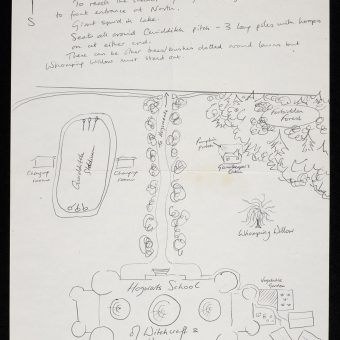 To reach the
to front entrance at North.
Giant squid in Lake.
Seats all around Quidditch pitch - 3 long poles with hoops
on at either end.
There can be other trees/bushes dotted around lawns but
Whomping Willow must stand out.
S
Forbidden
Forest
to Hogsmeade
Pumpkin
Patch
Gamekeeper's
Cabin
Quidditch
Stadium
Changing
Rooms
Changing
Rooms
Whomping Willow
Vegetable
Garden
Hogwarts School
of Witchcraft &